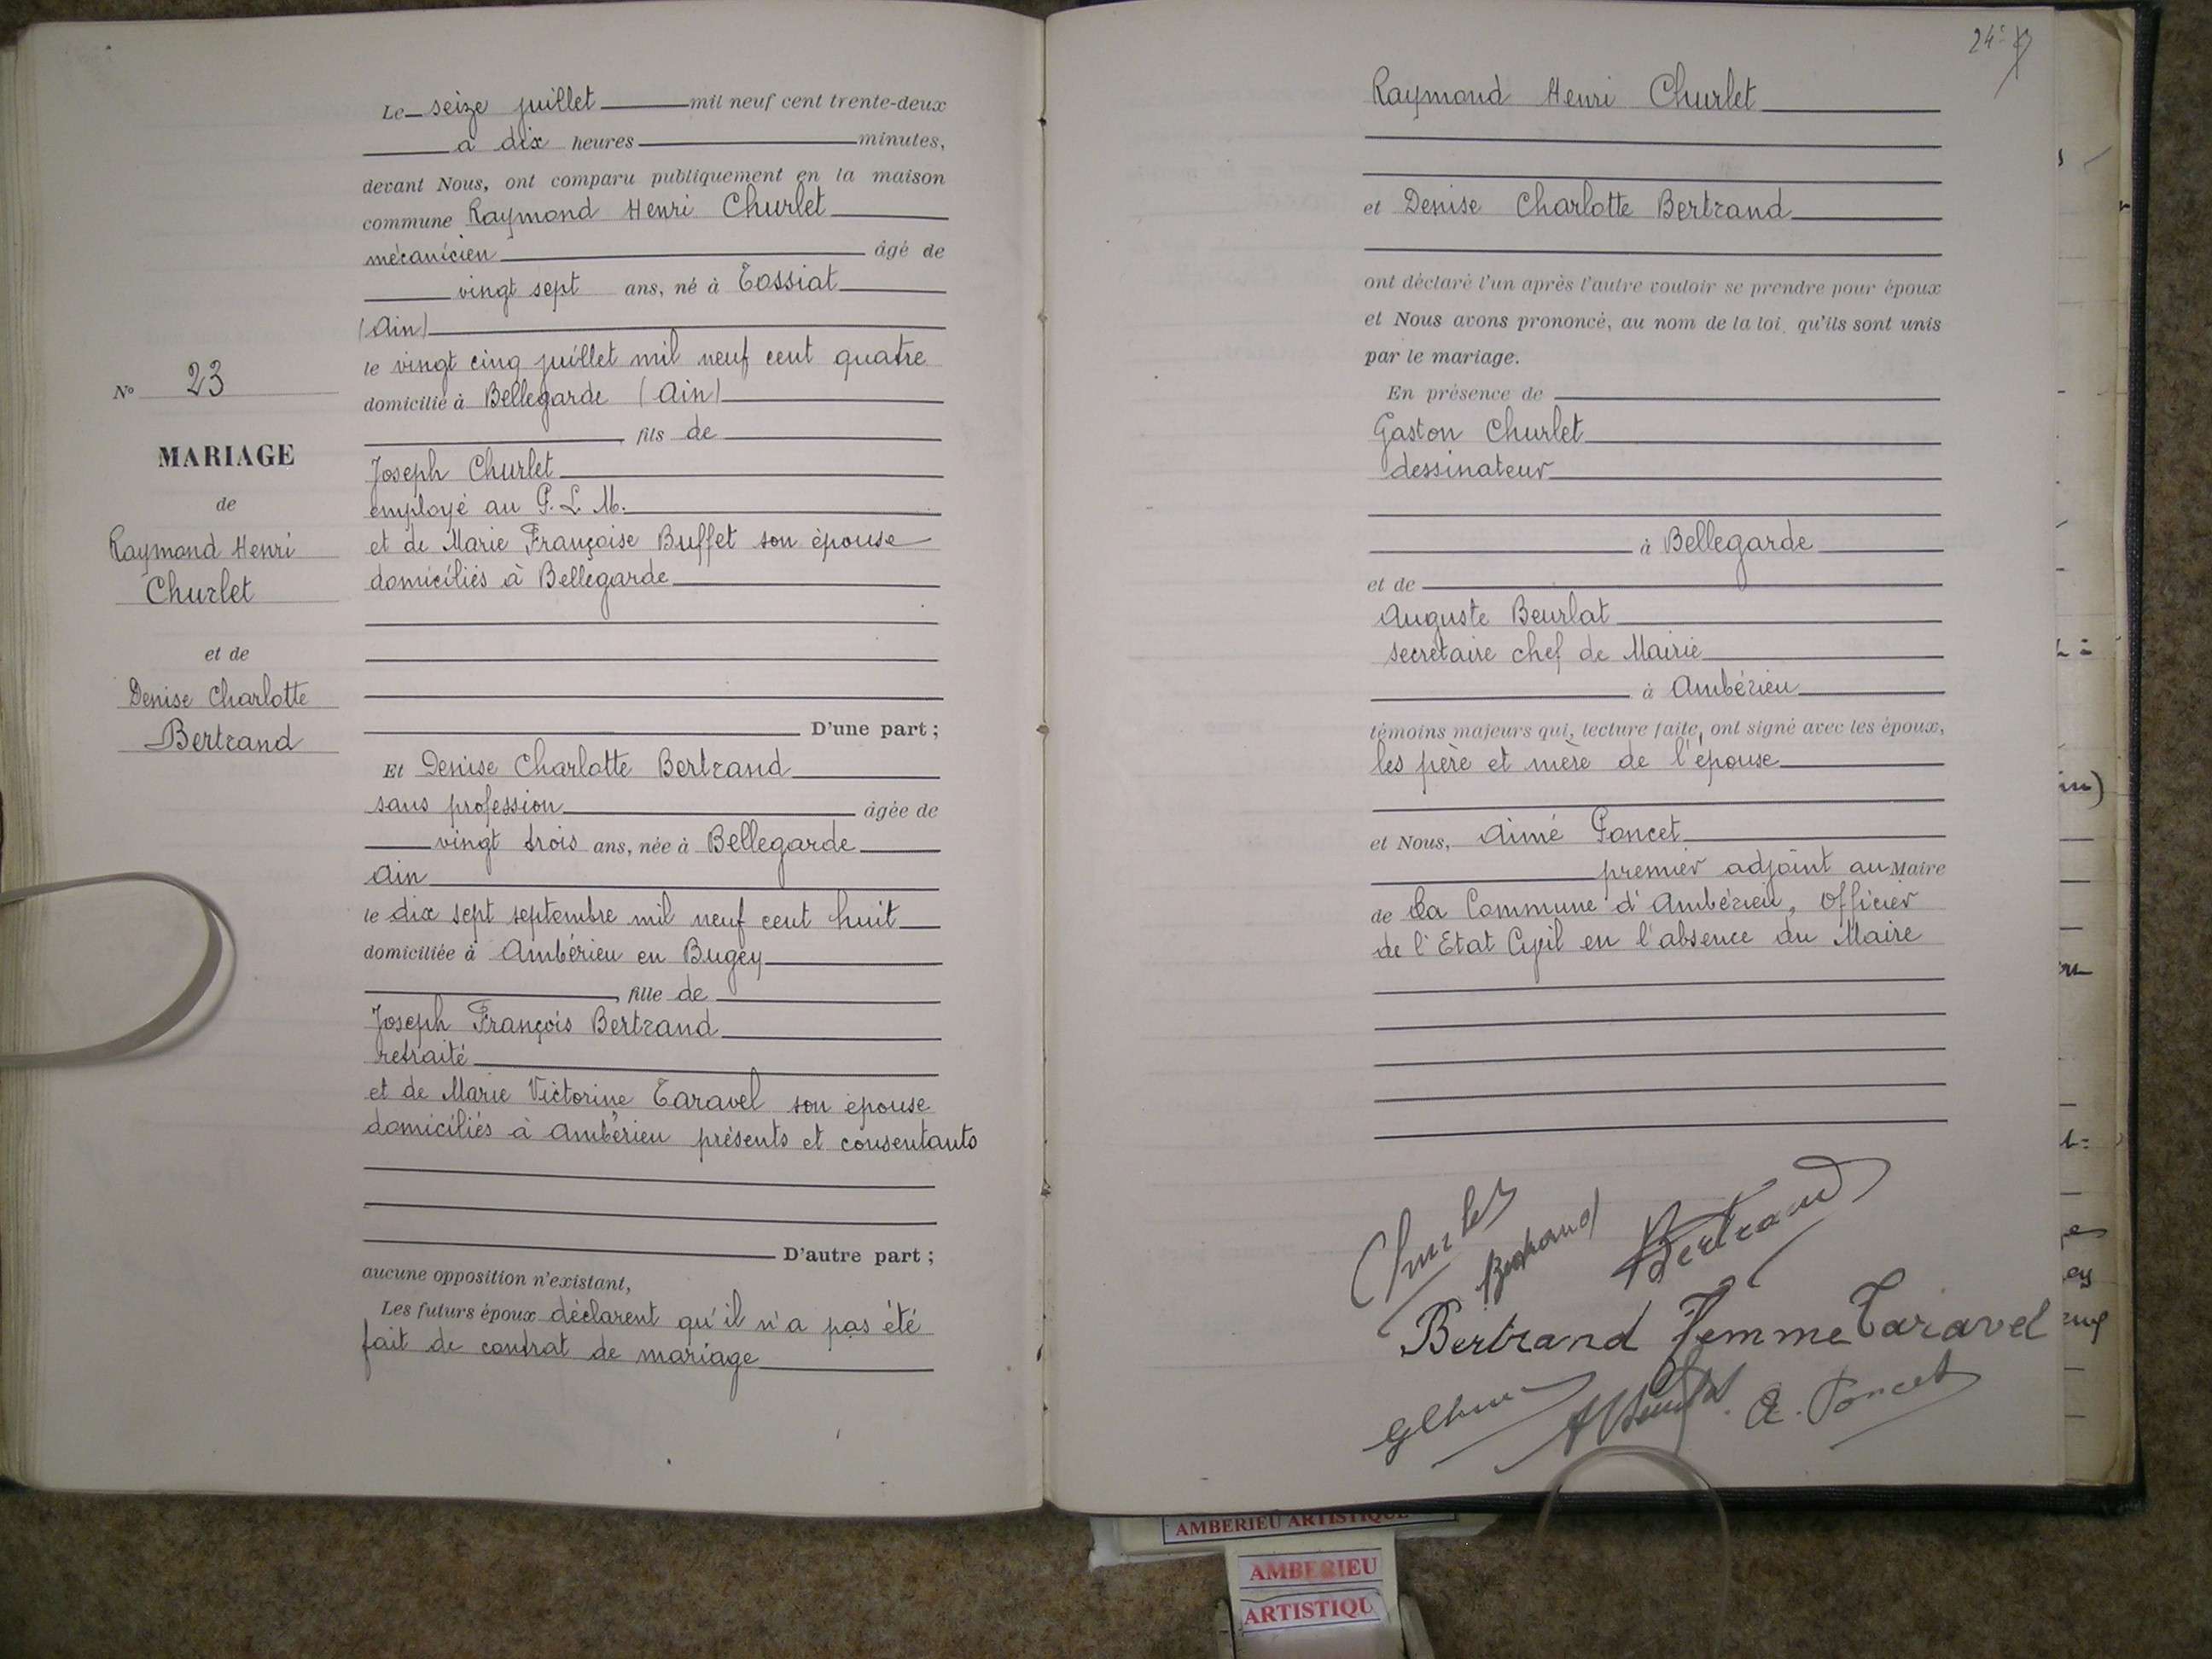 N° 23
MARIAGE
de
Raymond Henri
Churlet
et de
Denise Charlotte
Bertrand
Le seize juillet mil neuf cent trente-deux
à dix heures minutes,
devant Nous, ont comparu publiquement en la maison
commune Raymond Henri Churlet
mécanicien âgé de
vingt sept ans, né à Tossiat
(Ain)
le vingt cinq juillet mil neuf cent quatre
domicilié à Bellegarde (Ain)
fils de
Joseph Churlet
employé au P. L. M.
et de Marie Françoise Buffet son épouse
domiciliés à Bellegarde
D'une part ;
Et Denise Charlotte Bertrand
sans profession âgée de
vingt trois ans, née à Bellegarde
Ain
le dix sept septembre mil neuf cent huit
domiciliée à Ambérieu en Bugey
, fille de
Joseph François Bertrand
retraité
et de Marie Victorine Taravel son épouse
domiciliés à Ambérieu présents et consentants
D'autre part ;
aucune opposition n'existant,
Les futurs époux déclarent qu'il n'a pas été
fait de contrat de mariage
24
Raymond Henri Churlet
et Denise Charlotte Bertrand
ont déclaré l'un après l'autre vouloir se prendre pour époux
et Nous avons prononcé, au nom de la loi qu'ils sont unis
par le mariage.
En présence de
Gaston Churlet
dessinateur
à Bellegarde
et de
Auguste Beurlat
secrétaire chef de Mairie
à Ambérieu
témoins majeurs qui, lecture faite, ont signé avec les époux,
les père et mère de l'épouse
et Nous, Aimé Poncet
premier adjoint au Maire
de la Commune d'Ambérieu, Officier
de l'Etat Civil en l'absence du Maire
Churlet
Bertrand
Bertrand
Bertrand Femme Taravel
A. Poncet
AMBERIEU ARTISTIQUE
AMBERIEU
ARTISTIQU